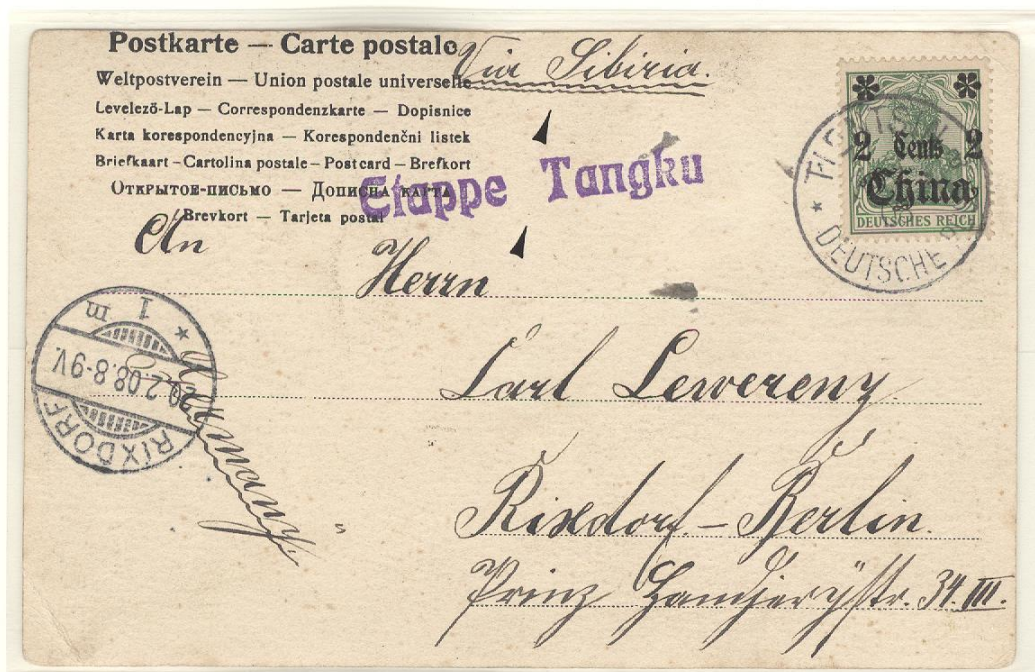 Postkarte — Carte postale
Weltpostverein — Union postale universelle
Levelező-Lap — Correspondenzkarte — Dopisnice
Karta korespondencyjna — Korespondenčni listek
Briefkaart – Cartolina postale – Postcard – Brefkort
Открытое-письмо — Дописна карта
Brevkort — Tarjeta postal
Via Sibiria.
2 Cents 2
China
DEUTSCHES REICH
DEUTSCHE
Etappe Tangku
An
Herrn
Carl Lewerenz
Rixdorf – Berlin.
Prinz Handjerystr. 34 III.
Germany.
RIXDORF
2.08.8-9V.
* 1 m